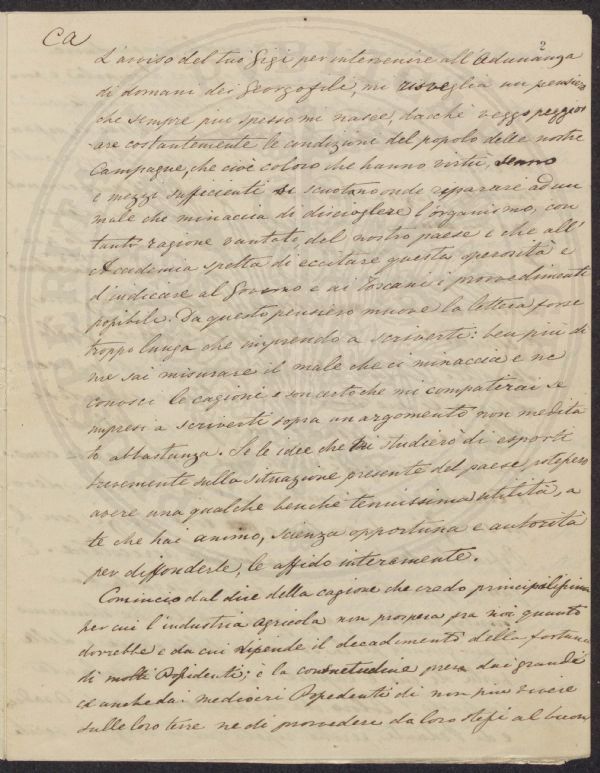 Ca
2
L'avviso del tuo Gigi per intervenire all'Adunanza
di domani dei Georgofili, mi risveglia un pensiero
che sempre più spesso mi nasce, dacchè veggo peggior
are costantemente le condizioni del popolo delle nostre
Campagne, che cioè coloro che hanno virtù, senno
e mezzi sufficienti si scuotano onde riparare ad un
male che minaccia di disciogliere l'organismo, con
tanta ragione vantato, del nostro paese e che all'
Accademia spetta di eccitare questa operosità e
d'indicare al Governo e ai Toscani i provvedimenti
possibili. Da questo pensiero muove la lettera forse
troppo lunga che imprendo a scriverti: ben più di
me sai misurare il male che ci minaccia e ne
conosci le cagioni e son certo che mi compatirai se
impresi a scriverti sopra un argomento non medita
to abbastanza. Se le idee che studierò di esporti
brevemente sulla situazione presente del paese, potessero
avere una qualche benchè tenuissima utilità, a
te che hai animo, scienza opportuna e autorità
per diffonderle, le affido interamente.
Comincio dal dire della cagione che credo principalissima
per cui l'industria agricola non prospera fra noi quanto
dovrebbe e da cui dipende il decadimento della fortuna
di molti Possidenti; è la consuetudine presa dai grandi
ed anche dai mediocri Possidenti di non più vivere
sulle loro terre nè di provvedere da loro stessi al buon